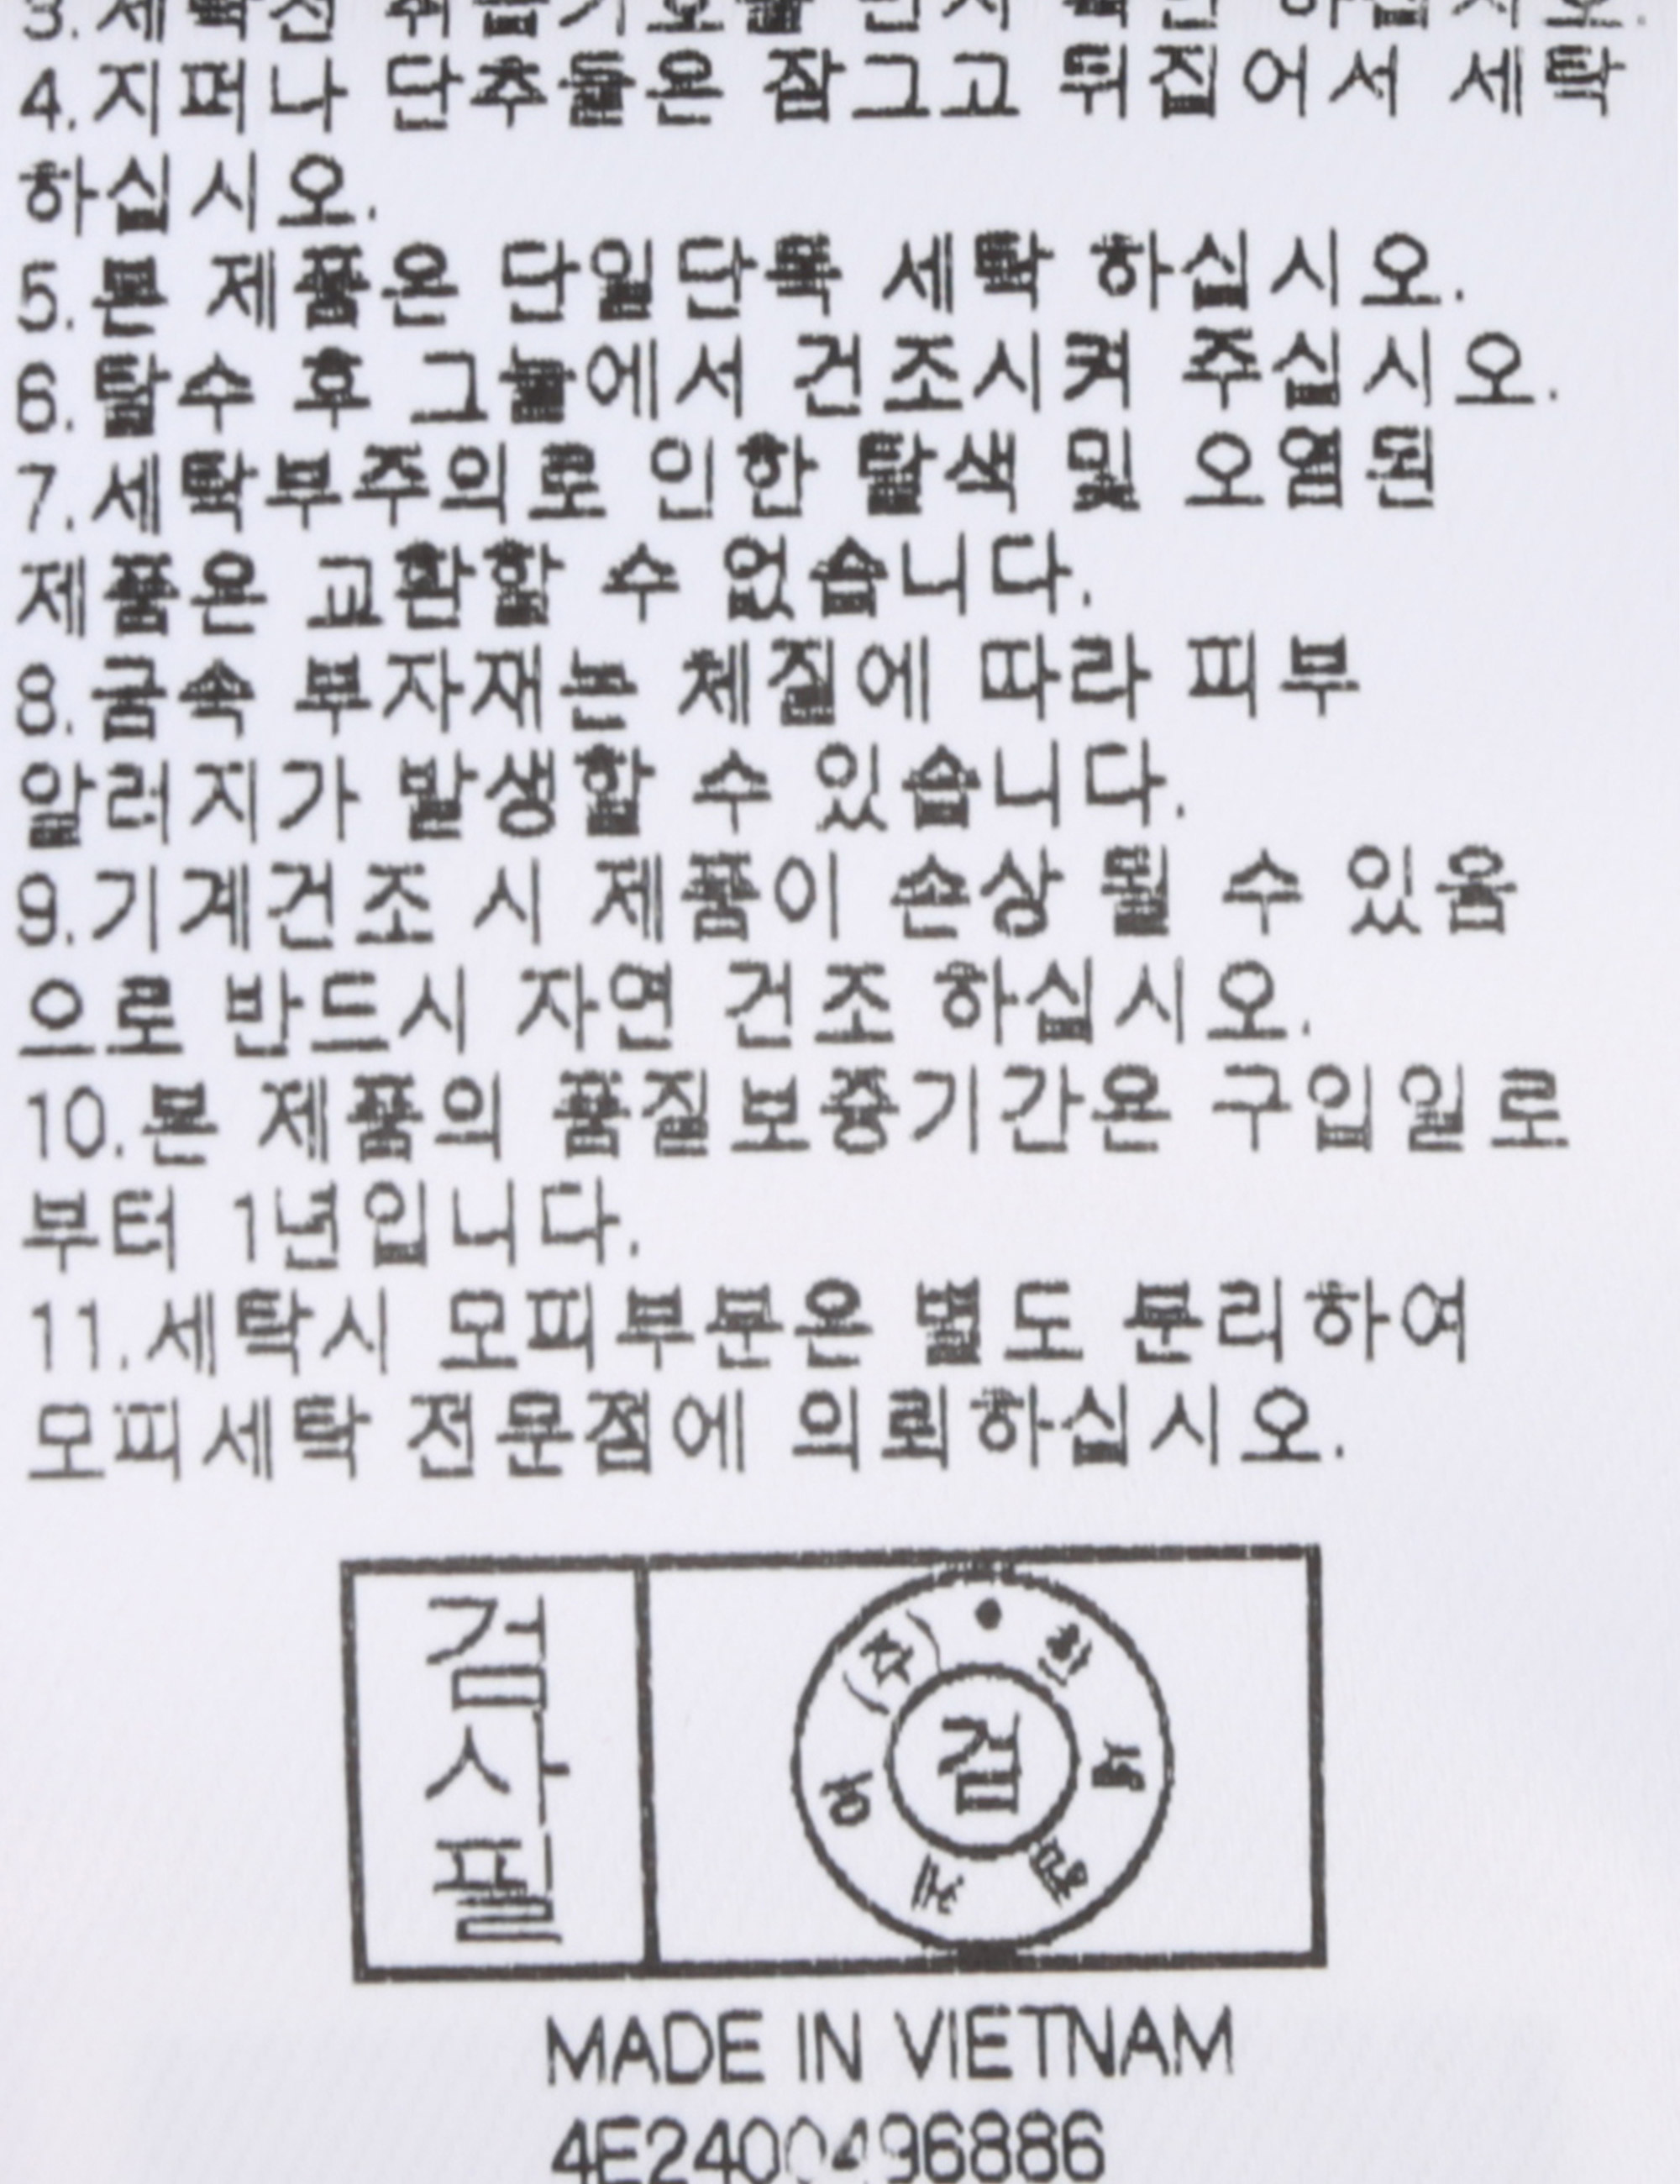 3.세탁전 취급기호를 먼저 확인 하십시오.
4.지퍼나 단추들은 잠그고 뒤집어서 세탁
하십시오.
5.본 제품은 단일단독 세탁 하십시오.
6.탈수 후 그늘에서 건조시켜 주십시오.
7.세탁부주의로 인한 탈색 및 오염된
제품은 교환할 수 없습니다.
8.금속 부자재는 체질에 따라 피부
알러지가 발생할 수 있습니다.
9.기계건조 시 제품이 손상 될 수 있음
으로 반드시 자연 건조 하십시오.
10.본 제품의 품질보증기간은 구입일로
부터 1년입니다.
11.세탁시 모피부분은 별도 분리하여
모피세탁 전문점에 의뢰하십시오.
검사필
(주)
검
MADE IN VIETNAM
4E2400496886